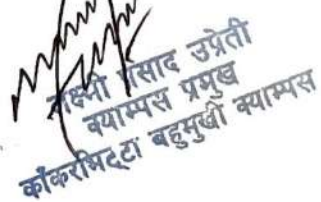 लक्ष्मी प्रसाद उप्रेती
क्याम्पस प्रमुख
काँकरभिट्टा बहुमुखी क्याम्पस